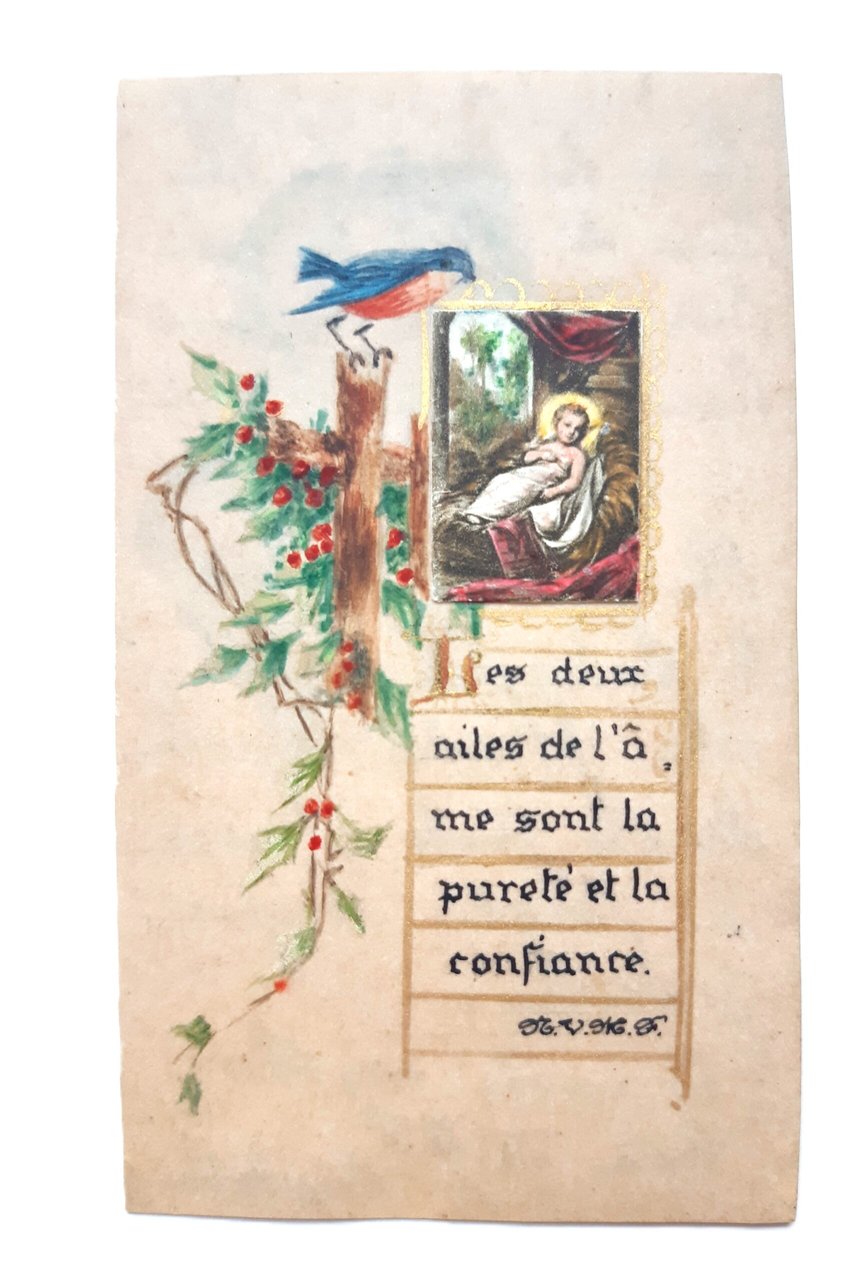 Les deux
ailes de l'â=
me sont la
pureté et la
confiance.